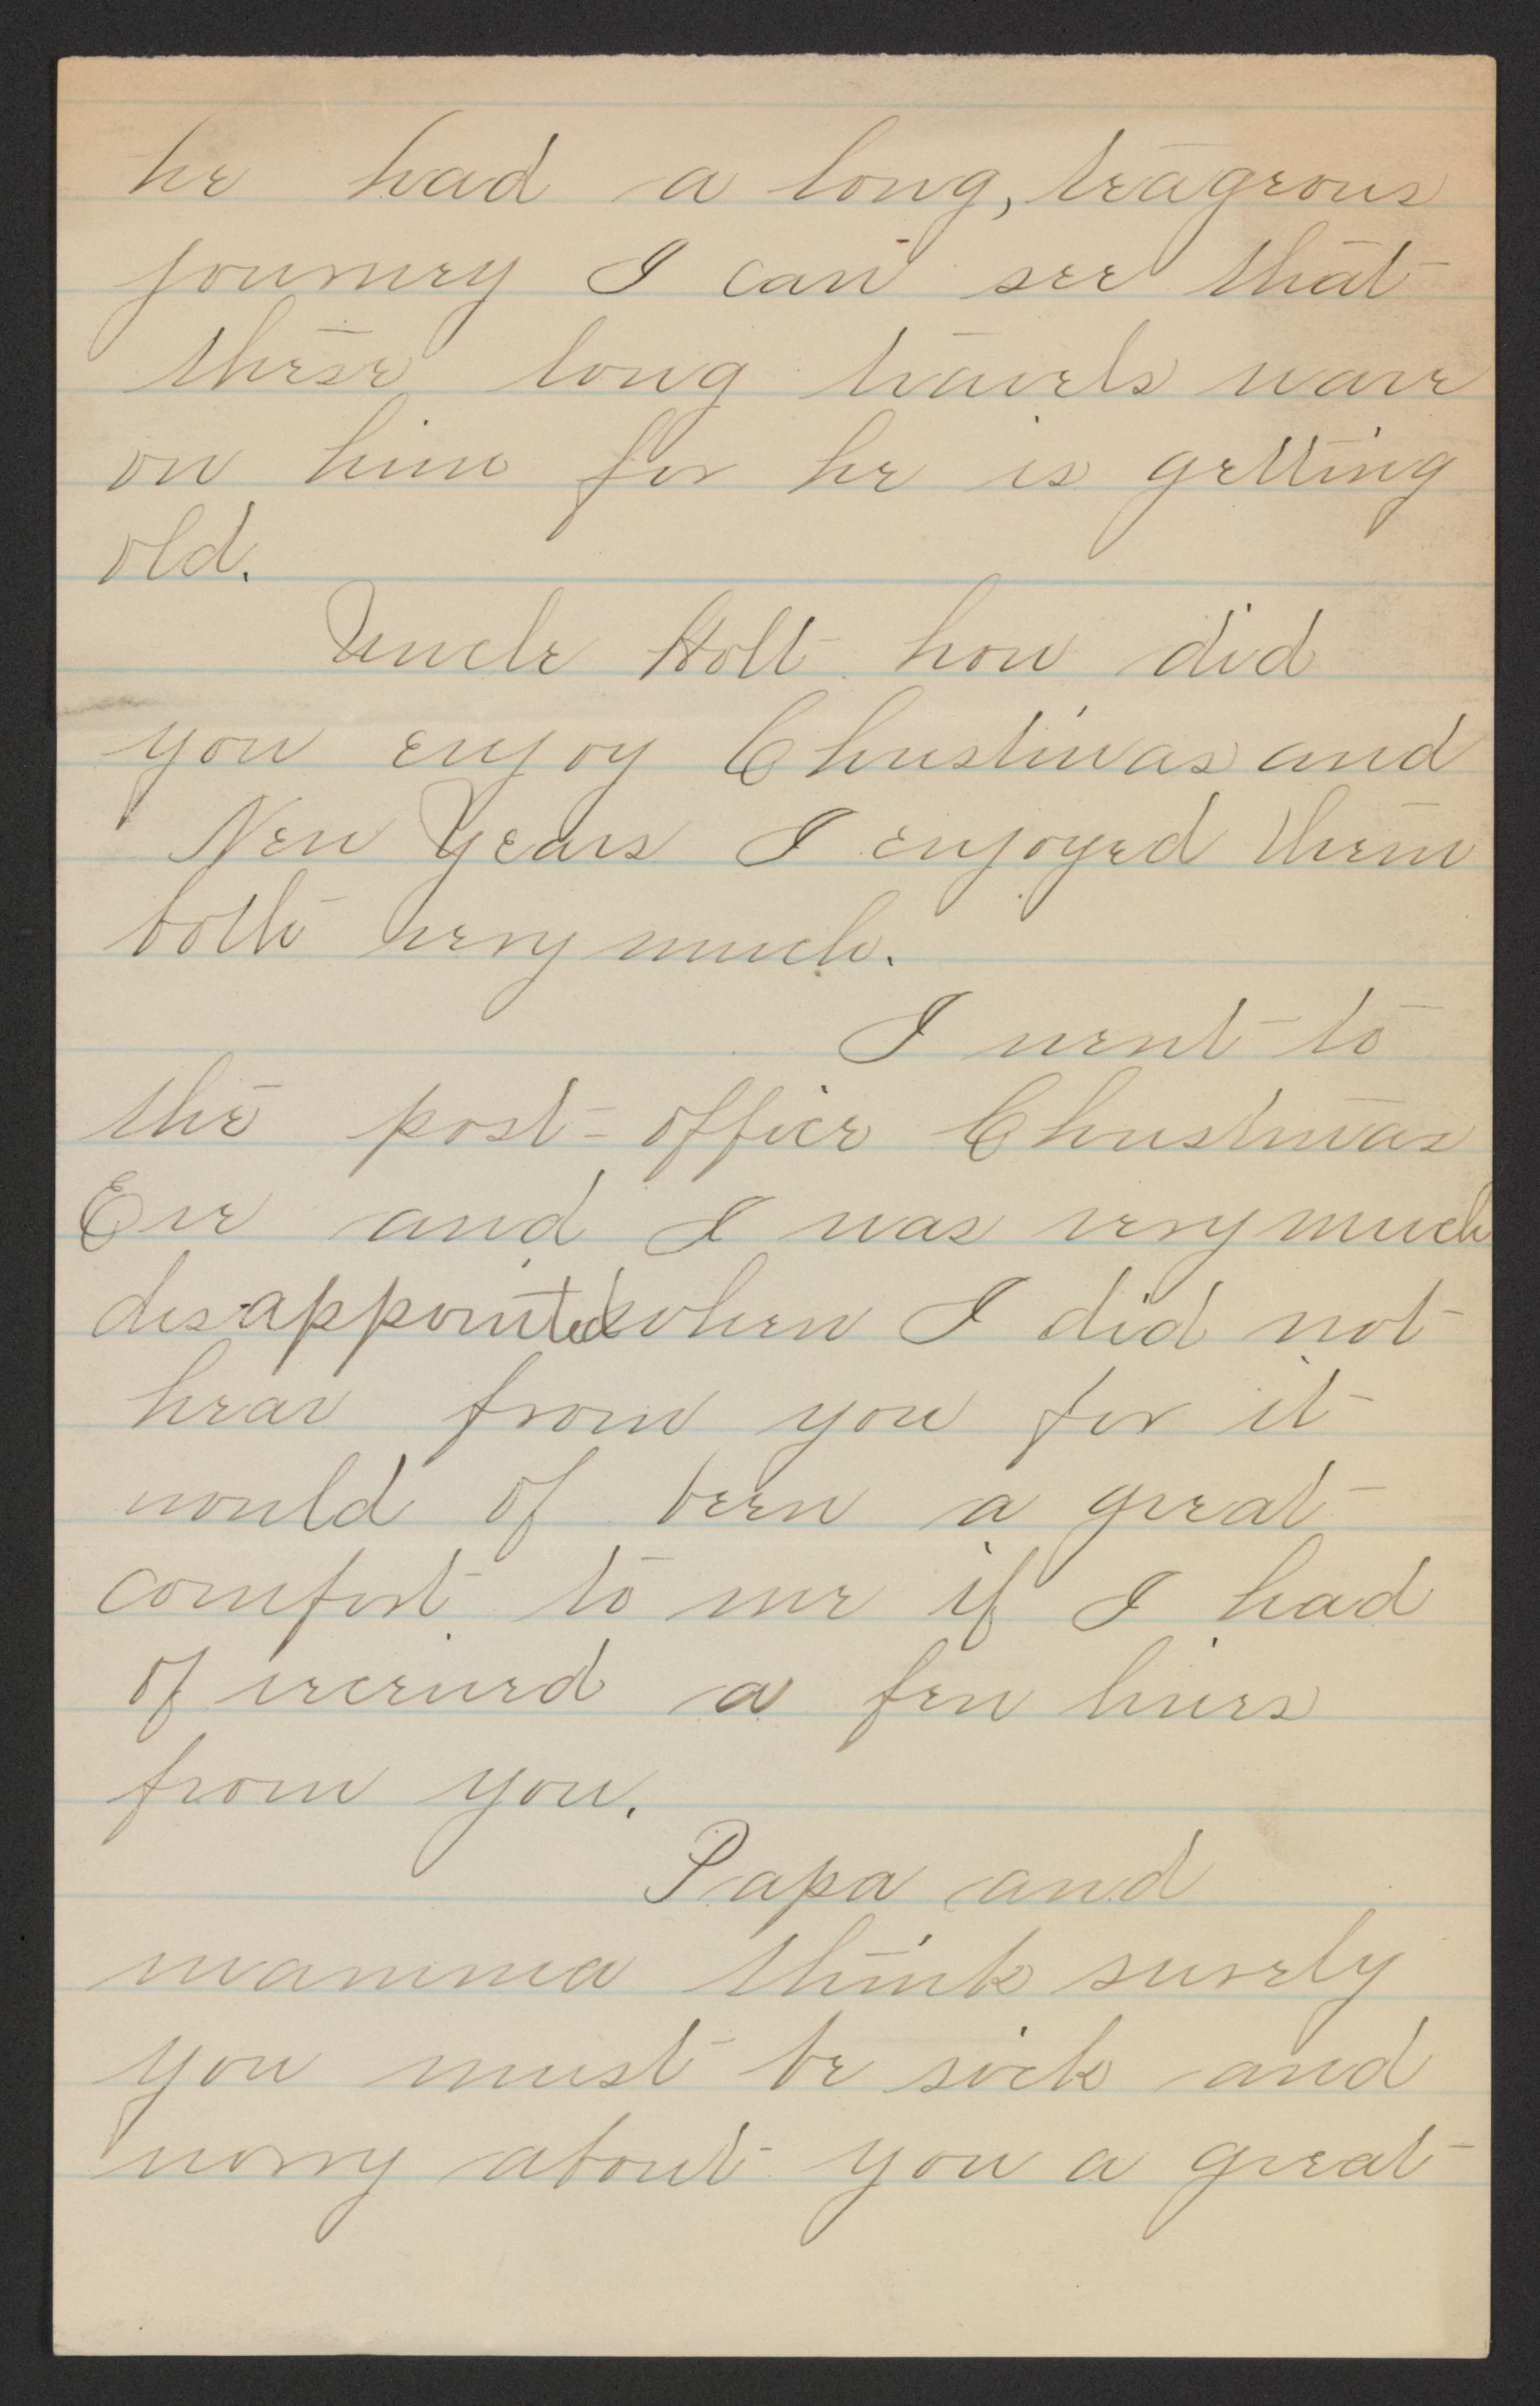 he had a long, teagrous
journey I can see that
these long travels ware
on him for he is getting
old.
Uncle Holt how did
you enjoy Christmas and
New Years I enjoyed them
both very much.
I went to
the post-office Christmas
Eve and I was very much
disappointed when I did not
hear from you for it
would of been a great
comfort to me if I had
of received a few lines
from you.
Papa and
mamma think surely
you must be sick and
worry about you a great